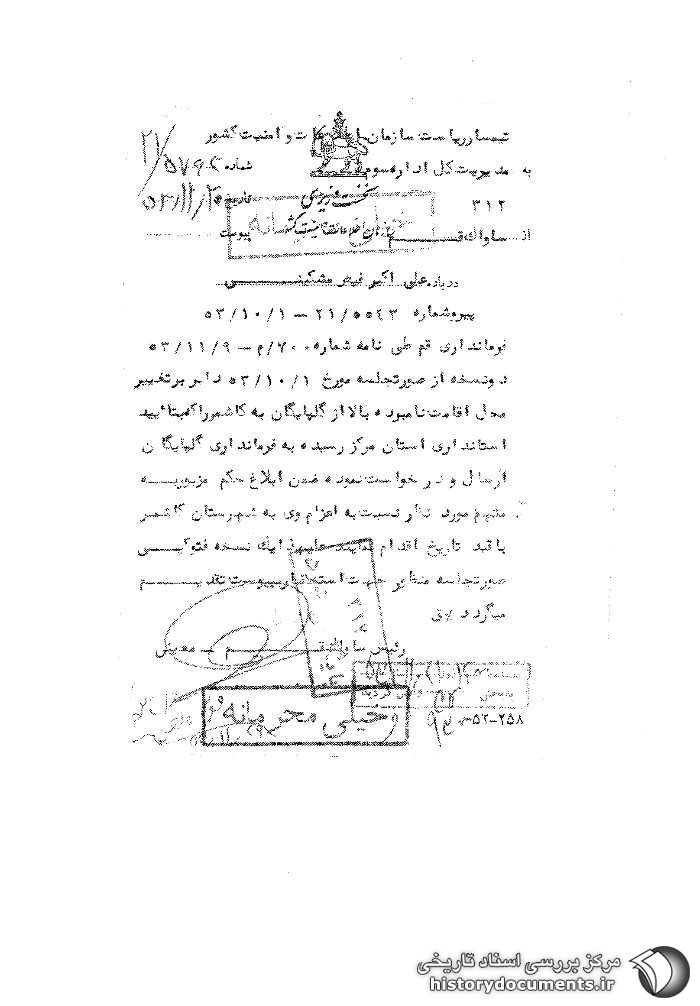 تیمسار ریاست سازمان اطلاعات و امنیت کشور
به مدیریت کل اداره سوم
۳۱۲
از ساواک قم
نخست وزیری
سازمان اطلاعات و امنیت کشور
شماره
تاریخ
پیوست
خیلی محرمانه
درباره علی اکبر فیض مشکینی
پیرو شماره ۲۱/۵۵۴۳ – ۵۳/۱۰/۱
فرمانداری قم طی نامه شماره ۷۰۰/م – ۵۳/۱۱/۹
دو نسخه از صورتجلسه مورخ ۵۳/۱۰/۱ دائر بر تغییر
محل اقامت نامبوده بالا از گلپایگان به کاشمر را که بتائید
استانداری استان مرکز رسیده به فرمانداری گلپایگان
ارسال و درخواست نموده ضمن ابلاغ حکم مزبور به
متهم مورد نظر نسبت به اعزام وی به شهرستان کاشمر
با قید تاریخ اقدام نمایند علیهذا یک نسخه فتوکپی
صورتجلسه منظور جهت استحضار بپیوست تقدیم
میگردد
رئیس ساواک قم – معینی
خیلی محرمانه
۵۲-۲۵۸
مرکز بررسی اسناد تاریخی
historydocuments.ir